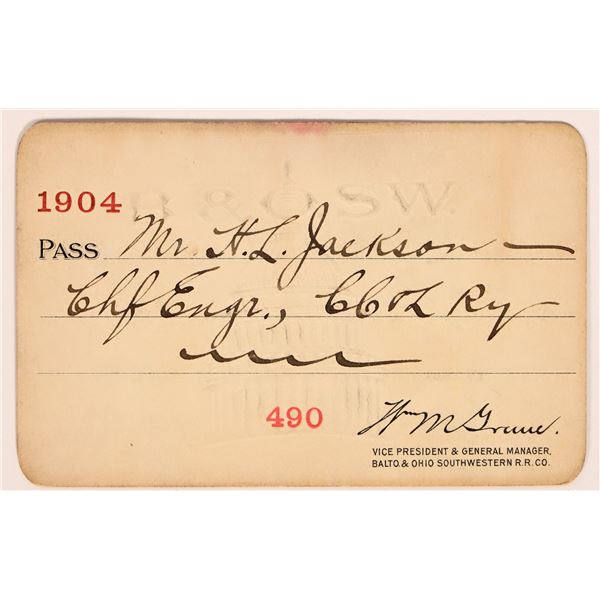 B & O S.W.
1904
PASS Mr. H. L. Jackson
Chf Engr., CC&L Ry
490
Wm M Greene.
VICE PRESIDENT & GENERAL MANAGER,
BALTO. & OHIO SOUTHWESTERN R.R. CO.